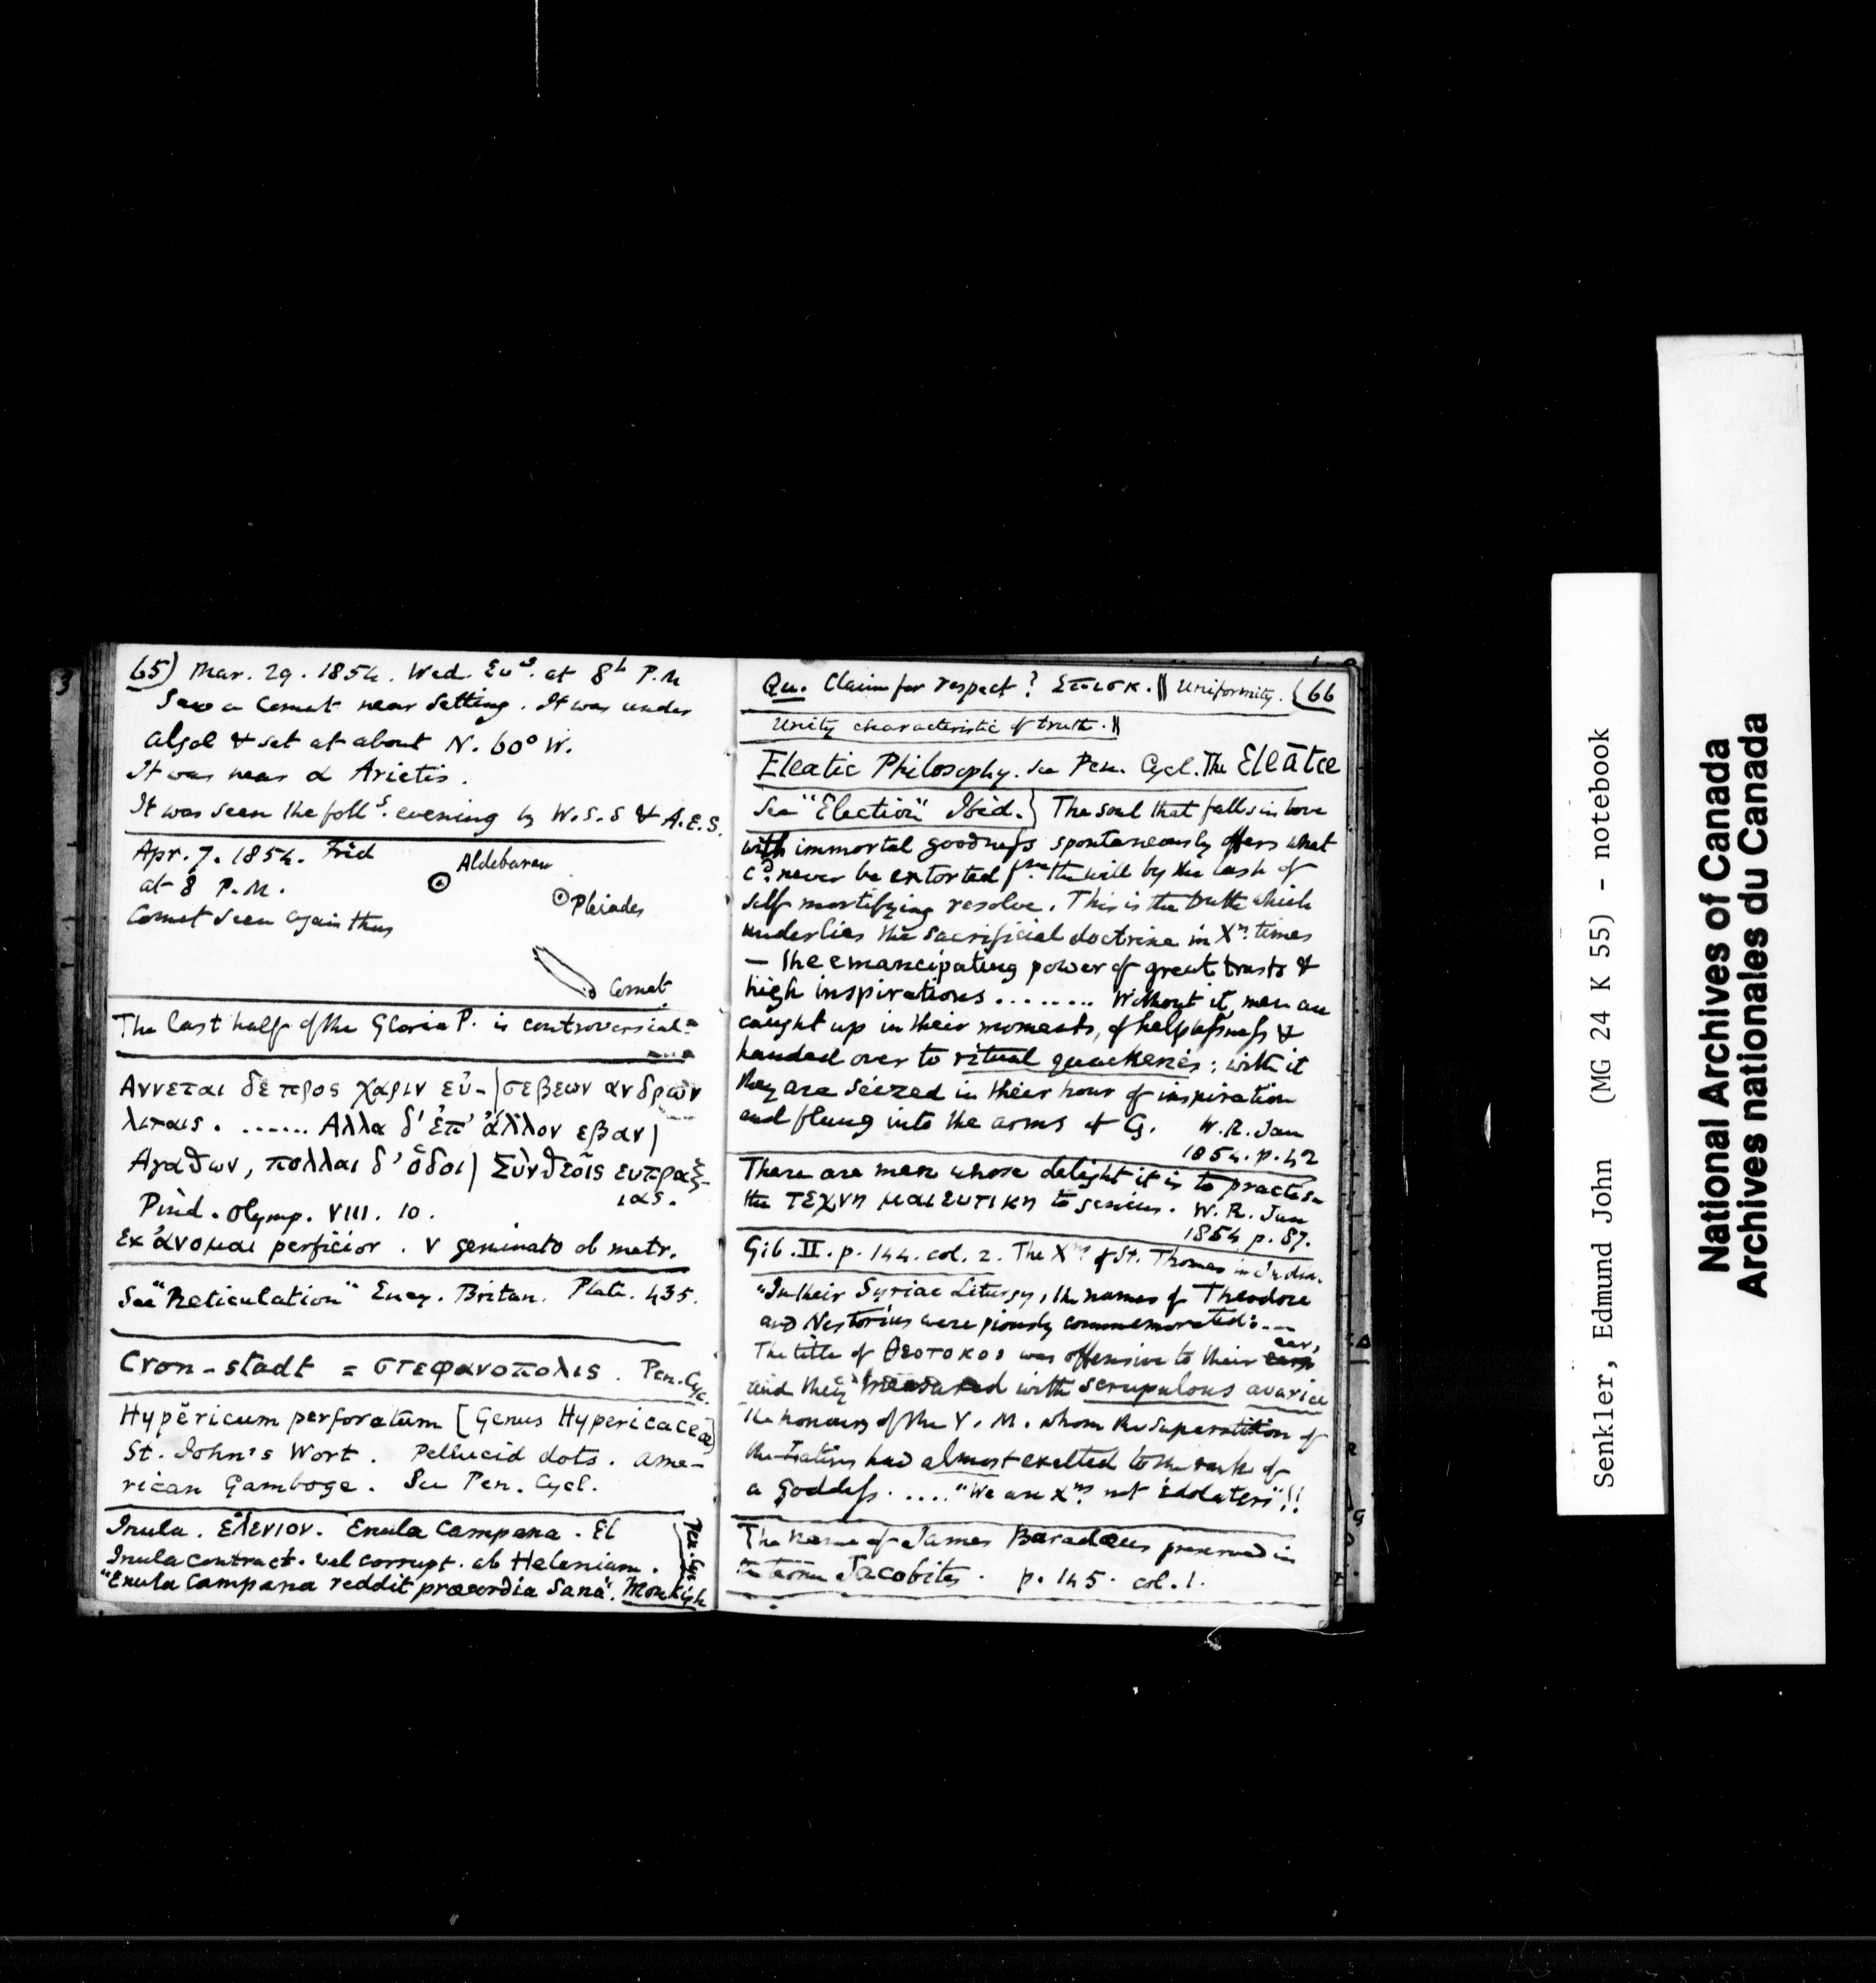 65) Mar. 29. 1854. Wed. Evg. at 8h P.M
Saw a Comet near setting. It was under
Algol & set at about N. 60° W.
It was near α Arietis.
It was seen the follg. evening by W.S.S & A.E.S.
Apr. 7. 1854. Frid
at 8 P.M.
Comet seen again thus
Aldebaran
Pleiades
Comet
The last half of the Gloria P. is controversial.
Αννεται δε προς χαριν εὐ-|σεβεων ανδρων
λιταις. ...... Αλλα δ' ἐπ' ἀλλον εβαν|
Αγαθων, πολλαι δ' ὁδοι| Σὺν θεοῖς ευπραξ-
ιας.
Pind. Olymp. VIII. 10.
Ex ἀνομαι perficior. ν geminato ob metr.
See "Reticulation" Ency. Britan. Plate. 435.
Cron-stadt = στεφανοπολις. Pen. Cyc.
Hypĕricum perforatum [Genus Hypericaceæ]
St. John's Wort. Pellucid dots. Ame-
rican Gamboge. See Pen. Cycl.
Inula. Ελενιον. Enula Campana. El
Inula contract. vel corrupt. ab Helenium.
"Enula Campana reddit præcordia Sana". Monkish
Pen. Cyc
Qu. Claim for respect? Επισκ. || Uniformity. (66
Unity characteristic of truth. ||
Eleatic Philosophy. See Pen. Cycl. The Eleātæ
See "Election" Ibid.} The soul that falls in love
with immortal goodness spontaneously offers what
cd. never be extorted fm. the will by the lash of
self mortifying resolve. This is the truth which
underlies the sacrificial doctrine in Xn. times
— the emancipating power of great trusts &
high inspirations ........ Without it, men are
caught up in their moments, of helplessness &
handed over to ritual quackeries; with it
they are seized in their hour of inspiration
and flung into the arms of G. W.R. Jan
1854. p. 42
There are men whose delight it is to practise
the τεχνη μαιευτικη to genius. W.R. Jan
1854 p. 87.
Gib. II. p. 144. col. 2. The Xns of St. Thomas in India.
"In their Syriac Liturgy, the names of Theodore
and Nestorius were piously commemorated: --
The title of Θεοτοκος was offensive to their ear,
and they measured with scrupulous avarice
the honours of the V. M. whom the superstition of
the Latins had almost exalted to the rank of
a Goddess. .... "We are Xns. not idolaters"!!
The name of James Baradæus preserved in
the term Jacobites. p. 145. col. 1.
Senkler, Edmund John (MG 24 K 55) - notebook
National Archives of Canada
Archives nationales du Canada